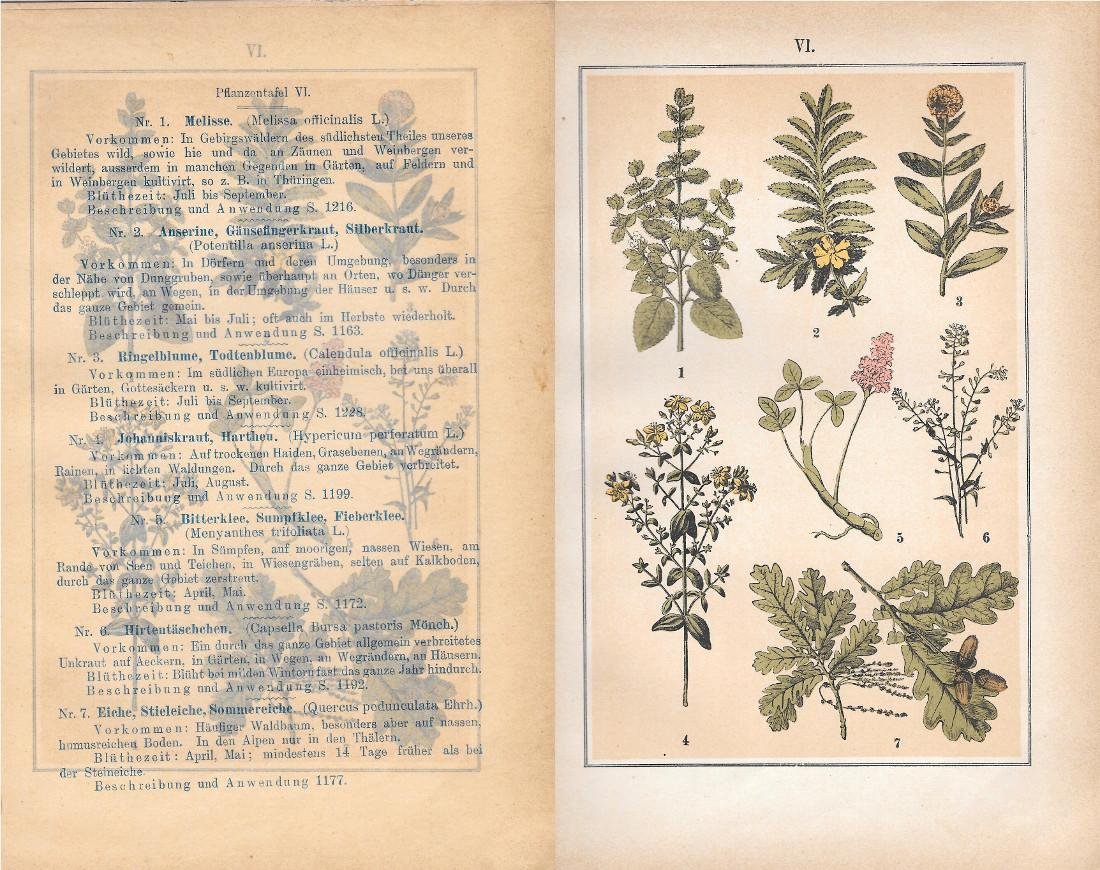 VI.
Pflanzentafel VI.
Nr. 1. Melisse. (Melissa officinalis L.)
Vorkommen: In Gebirgswäldern des südlichsten Theiles unseres
Gebietes wild, sowie hie und da an Zäunen und Weinbergen ver-
wildert, ausserdem in manchen Gegenden in Gärten, auf Feldern und
in Weinbergen kultivirt, so z. B. in Thüringen.
Blüthezeit: Juli bis September.
Beschreibung und Anwendung S. 1216.
Nr. 2. Anserine, Gänsefingerkraut, Silberkraut.
(Potentilla anserina L.)
Vorkommen: In Dörfern und deren Umgebung, besonders in
der Nähe von Dunggruben, sowie überhaupt an Orten, wo Dünger ver-
schleppt wird, an Wegen, in der Umgebung der Häuser u. s. w. Durch
das ganze Gebiet gemein.
Blüthezeit: Mai bis Juli; oft auch im Herbste wiederholt.
Beschreibung und Anwendung S. 1163.
Nr. 3. Ringelblume, Todtenblume. (Calendula officinalis L.)
Vorkommen: Im südlichen Europa einheimisch, bei uns überall
in Gärten, Gottesäckern u. s. w. kultivirt.
Blüthezeit: Juli bis September.
Beschreibung und Anwendung S. 1228.
Nr. 4. Johanniskraut, Hartheu. (Hypericum perforatum L.)
Vorkommen: Auf trockenen Haiden, Grasebenen, an Wegrändern,
Rainen, in lichten Waldungen. Durch das ganze Gebiet verbreitet.
Blüthezeit: Juli, August.
Beschreibung und Anwendung S. 1199.
Nr. 5. Bitterklee, Sumpfklee, Fieberklee.
(Menyanthes trifoliata L.)
Vorkommen: In Sümpfen, auf moorigen, nassen Wiesen, am
Rande von Seen und Teichen, in Wiesengräben, selten auf Kalkboden,
durch das ganze Gebiet zerstreut.
Blüthezeit: April, Mai.
Beschreibung und Anwendung S. 1172.
Nr. 6. Hirtentäschchen. (Capsella Bursa pastoris Mönch.)
Vorkommen: Ein durch das ganze Gebiet allgemein verbreitetes
Unkraut auf Aeckern, in Gärten, in Wegen, an Wegrändern, an Häusern.
Blüthezeit: Blüht bei milden Wintern fast das ganze Jahr hindurch.
Beschreibung und Anwendung S. 1192.
Nr. 7. Eiche, Stieleiche, Sommereiche. (Quercus pedunculata Ehrh.)
Vorkommen: Häufiger Waldbaum, besonders aber auf nassen,
humusreichen Boden. In den Alpen nur in den Thälern.
Blüthezeit: April, Mai; mindestens 14 Tage früher als bei
der Steineiche.
Beschreibung und Anwendung 1177.
VI.
1
2
3
4
5
6
7